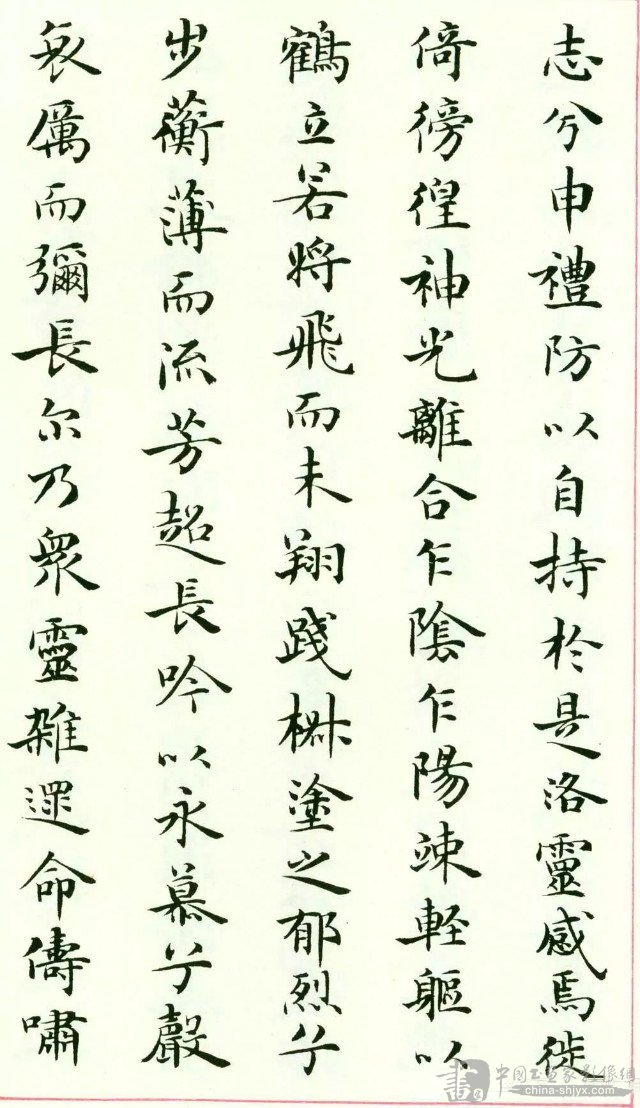 志兮申禮防以自持於是洛靈感焉徙
倚徬徨神光離合乍陰乍陽竦軽軀以
鶴立若將飛而未翔踐椒塗之郁烈兮
步蘅薄而流芳超長吟以永慕兮聲
哀厲而彌長尔乃衆靈雜遝命儔嘯
中國書畫家影像網
china-shjyx.com